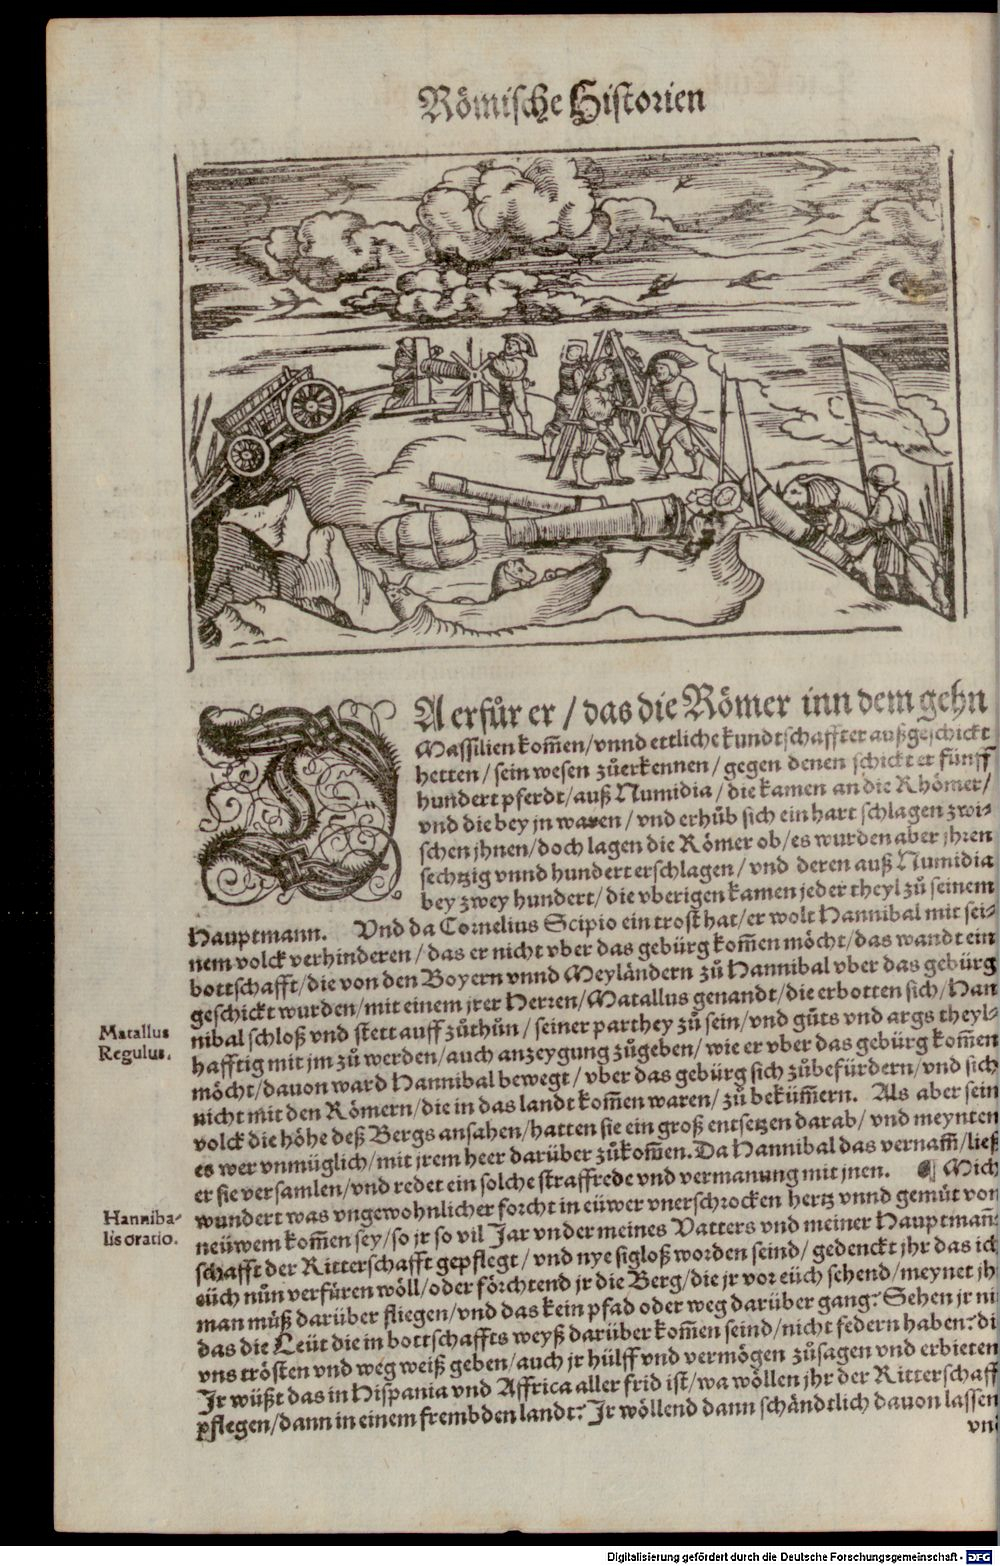 Römische Historien
DA erfůr er / das die Römer inn dem gehn
Massilien kom̃en/vnnd ettliche kundtschaffter außgeschickt
hetten / sein wesen zůerkennen / gegen denen schickt er fünff
hundert pferdt/auß Numidia / die kamen an die Rhömer/
vnd die bey jn waren / vnd erhůb sich ein hart schlagen zwi-
schen jhnen/doch lagen die Römer ob/es wurden aber jhren
sechtzig vnnd hundert erschlagen / vnd deren auß Numidia
bey zwey hundert/die vberigen kamen jeder theyl zů seinem
Hauptmann. Vnd da Cornelius Scipio ein trost hat/er wolt Hannibal mit sei-
nem volck verhinderen / das er nicht vber das gebürg kom̃en möcht/das wandt ein
bottschafft/die von den Boyern vnnd Meyländern zů Hannibal vber das gebürg
geschickt wurden/mit einem jrer Herren/Matallus genandt/die erbotten sich/Han
nibal schloß vnd stett auff zůthůn / seiner parthey zů sein/vnd gůts vnd args theyl-
Matallus
Regulus.
hafftig mit jm zů werden/auch anzeygung zůgeben/wie er vber das gebürg kom̃en
möcht/dauon ward Hannibal bewegt / vber das gebürg sich zůbefürdern/vnd sich
nicht mit den Römern/die in das landt kom̃en waren/ zů beküm̃ern. Als aber sein
volck die höhe deß Bergs ansahen/hatten sie ein groß entsetzen darab/ vnd meynten
es wer vnmüglich/mit jrem heer darüber zůkom̃en. Da Hannibal das vernam̃/ließ
er sie versamlen/vnd redet ein solche straffrede vnd vermanung mit jnen. ¶ Mich
wundert was vngewohnlicher forcht in eüwer vnerschrocken hertz vnnd gemüt von
Hanniba-
lis oratio.
neüwem kom̃en sey/so jr so vil Jar vnder meines Vatters vnd meiner Hauptmañ-
schafft der Ritterschafft gepflegt / vnd nye sigloß worden seind/ gedenckt jhr das ich
eüch nůn verfüren wöll/oder förchtend jr die Berg/die jr vor eüch sehend/meynet jh
man můß darüber fliegen/vnd das kein pfad oder weg darüber gang? Sehen jr ni
das die Leüt die in bottschaffts weyß darüber kom̃en seind/nicht federn haben? di
vns trösten vnd weg weiß geben/auch jr hülff vnd vermögen zůsagen vnd erbieten
Jr wüßt das in Hispania vnd Affrica aller frid ist/wa wöllen jhr der Ritterschaff
pflegen/dann in einem frembden landt? Jr wöllend dann schändtlich dauon lassen
vnd
Digitalisierung gefördert durch die Deutsche Forschungsgemeinschaft - DFG